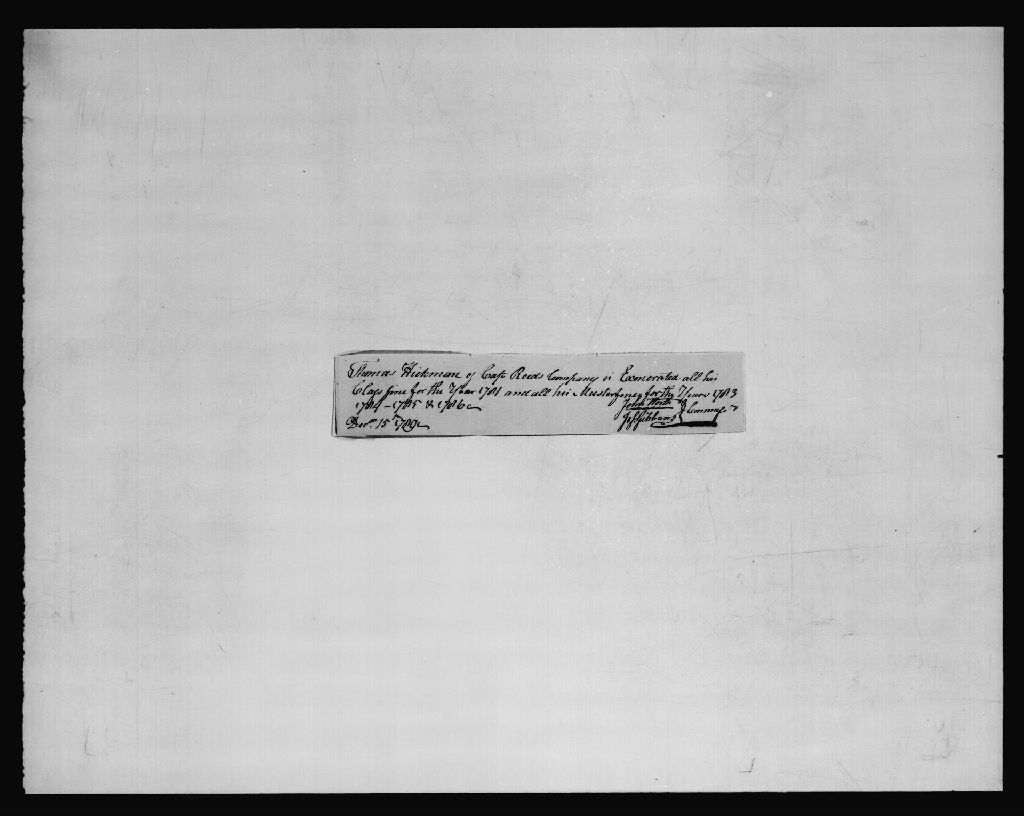 Thomas Hickman of Capt Reeds Company is Exonerated all his
Class fine for the Year 1781 and all his Musterfines for the Years 1783
1784 - 1785 & 1786
John North
Js Gibbons } Commrs
Decr. 15th 1789